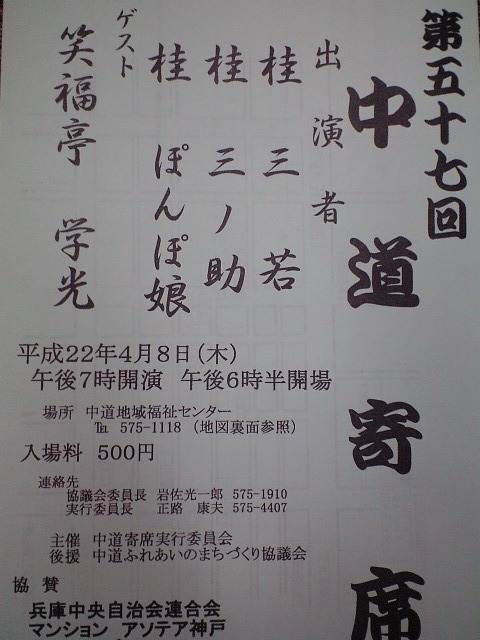 第五十七回
中道寄席
出演者
桂 三若
桂 三ノ助
桂 ぽんぽ娘
ゲスト
笑福亭 学光
平成22年4月8日(木)
午後7時開演 午後6時半開場
場所 中道地域福祉センター
℡ 575-1118 (地図裏面参照)
入場料 500円
連絡先
協議会委員長 岩佐光一郎 575-1910
実行委員長 正路 康夫 575-4407
主催 中道寄席実行委員会
後援 中道ふれあいのまちづくり協議会
協賛
兵庫中央自治会連合会
マンション アソテア神戸